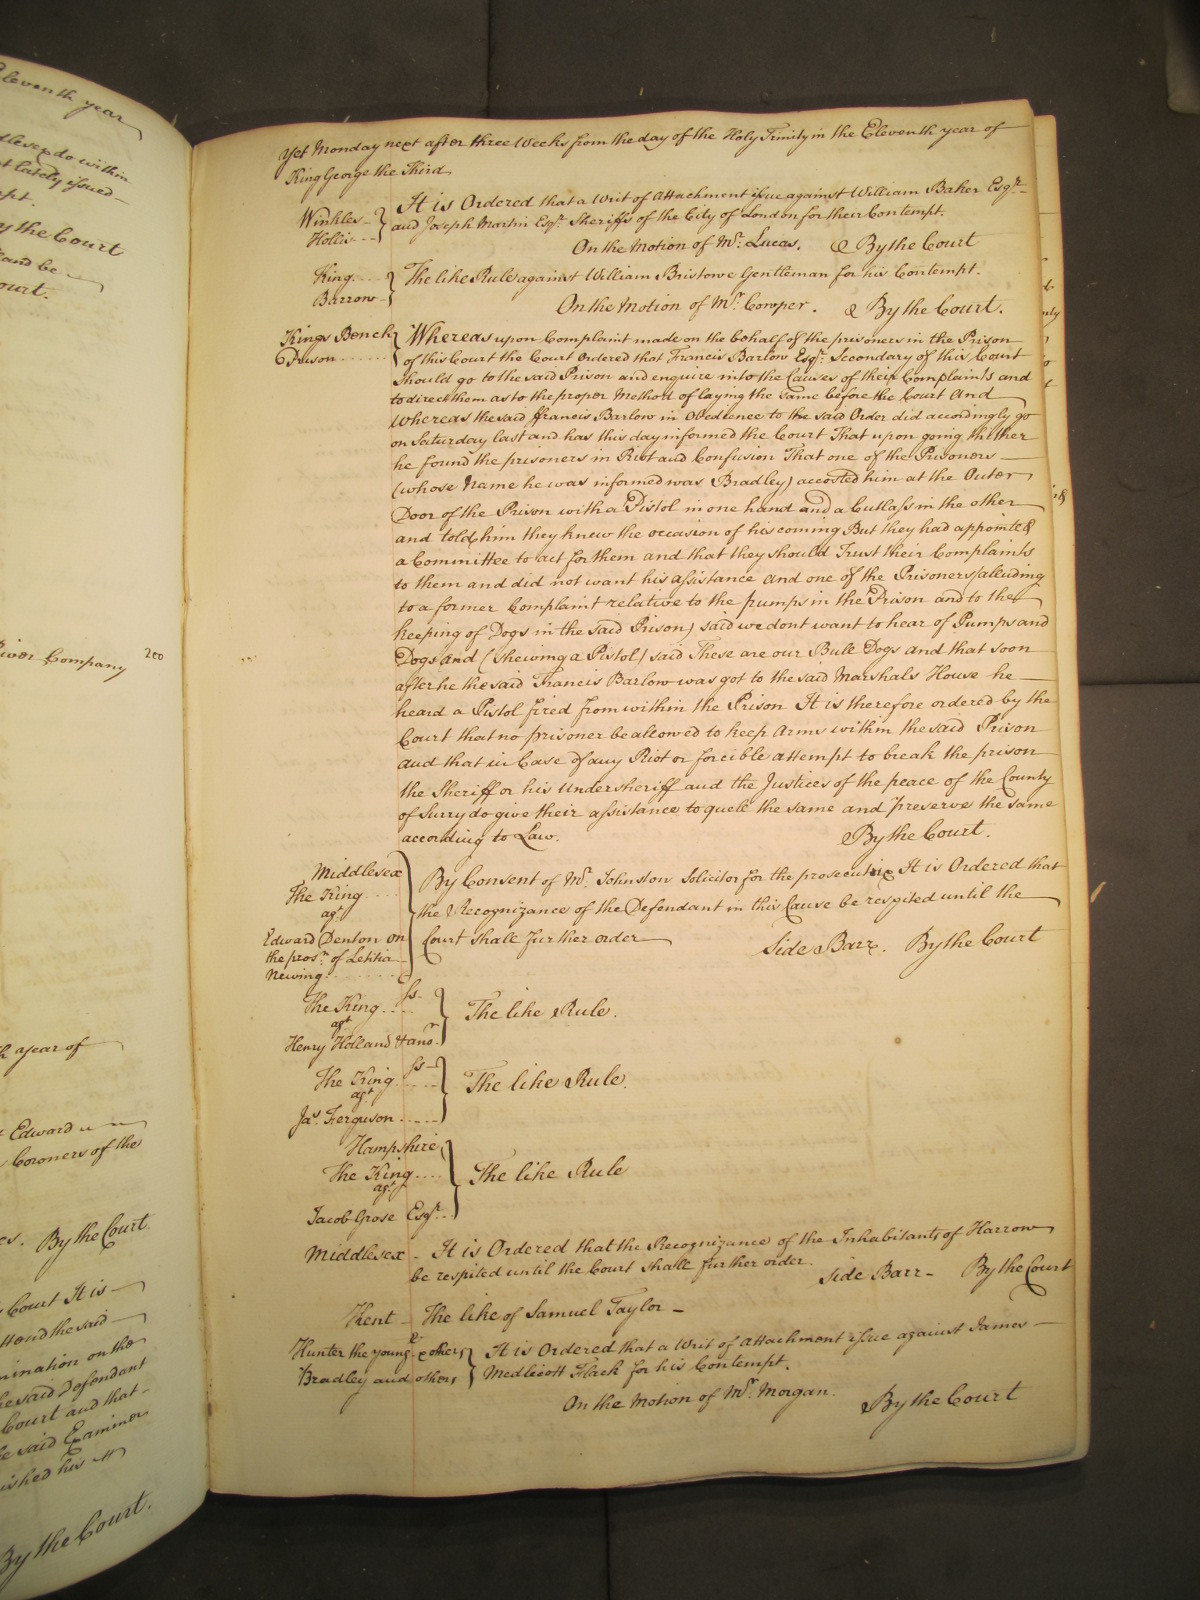 Eleventh year
dlesex do within
t lately issued
pt.
y the Court
and be
ourt.
River Company 200
h year of
Edward
Coroners of the
es. By the Court.
Court It is
ttend the said
mination on the
he said Defendant
Court and that
e said Examiner
ished his
By the Court.
Yet Monday next after three Weeks from the day of the Holy Trinity in the Eleventh year of
King George the Third
Winkles
Hollis
It is Ordered that a Writ of Attachment issue against William Baker Esqr.
and Joseph Martin Esqr. Sheriffs of the City of London for their Contempt.
On the Motion of Mr. Lucas. By the Court
King
Barrow
The like Rule against William Bristowe Gentleman for his Contempt.
On the Motion of Mr. Cowper. By the Court.
Kings Bench
Prison
Whereas upon Complaint made on the behalf of the prisoners in the Prison
of this Court the Court Ordered that Francis Barlow Esqr. Secondary of this Court
should go to the said Prison and enquire into the Causes of their Complaints and
to direct them as to the proper Method of laying the same before the Court And
Whereas the said ffrancis Barlow in Obedience to the said Order did accordingly go
on Saturday last and has this day informed the Court That upon going thither
he found the prisoners in Riot and Confusion That one of the Prisoners
(whose Name he was informed was Bradley) accosted him at the Outer
Door of the Prison with a Pistol in one hand and a Cutlass in the other
and told him they knew the occasion of his coming But they had appointed
a Committee to act for them and that they should Trust their Complaints
to them and did not want his assistance and one of the Prisoners (alluding
to a former Complaint relative to the pumps in the Prison and to the
keeping of Dogs in the said Prison) said we dont want to hear of Pumps and
Dogs and (shewing a Pistol) said These are our Bull Dogs and that soon
after he the said Francis Barlow was got to the said Marshals House he
heard a Pistol fired from within the Prison It is therefore ordered by the
Court that no prisoner be allowed to keep Arms within the said Prison
and that in Case of any Riot or forcible attempt to break the prison
the Sheriff or his Undersheriff and the Justices of the peace of the County
of Surry do give their assistance to quell the same and preserve the same
according to Law. By the Court.
Middlesex
The King
agt.
Edward Denton on
the prosn. of Letitia
Newing
By Consent of Mr. Johnston Solicitor for the prosecutrix It is Ordered that
the Recognizance of the Defendant in this Cause be respited until the
Court shall further order
Side Barr. By the Court
ss
The King
agt
Henry Holland & anor.
The like Rule.
ss
The King
agt
Jas. Ferguson
The like Rule.
Hampshire
The King
agt
Jacob Grose Esqr.
The like Rule
Middlesex - It is Ordered that the Recognizance of the Inhabitants of Harrow
be respited until the Court shall further order.
Side Barr - By the Court
Kent - The like of Samuel Taylor -
Hunter the youngr. & others
Bradley and others
It is Ordered that a Writ of Attachment issue against James
Medlicott Flack for his Contempt.
On the Motion of Mr. Morgan. By the Court